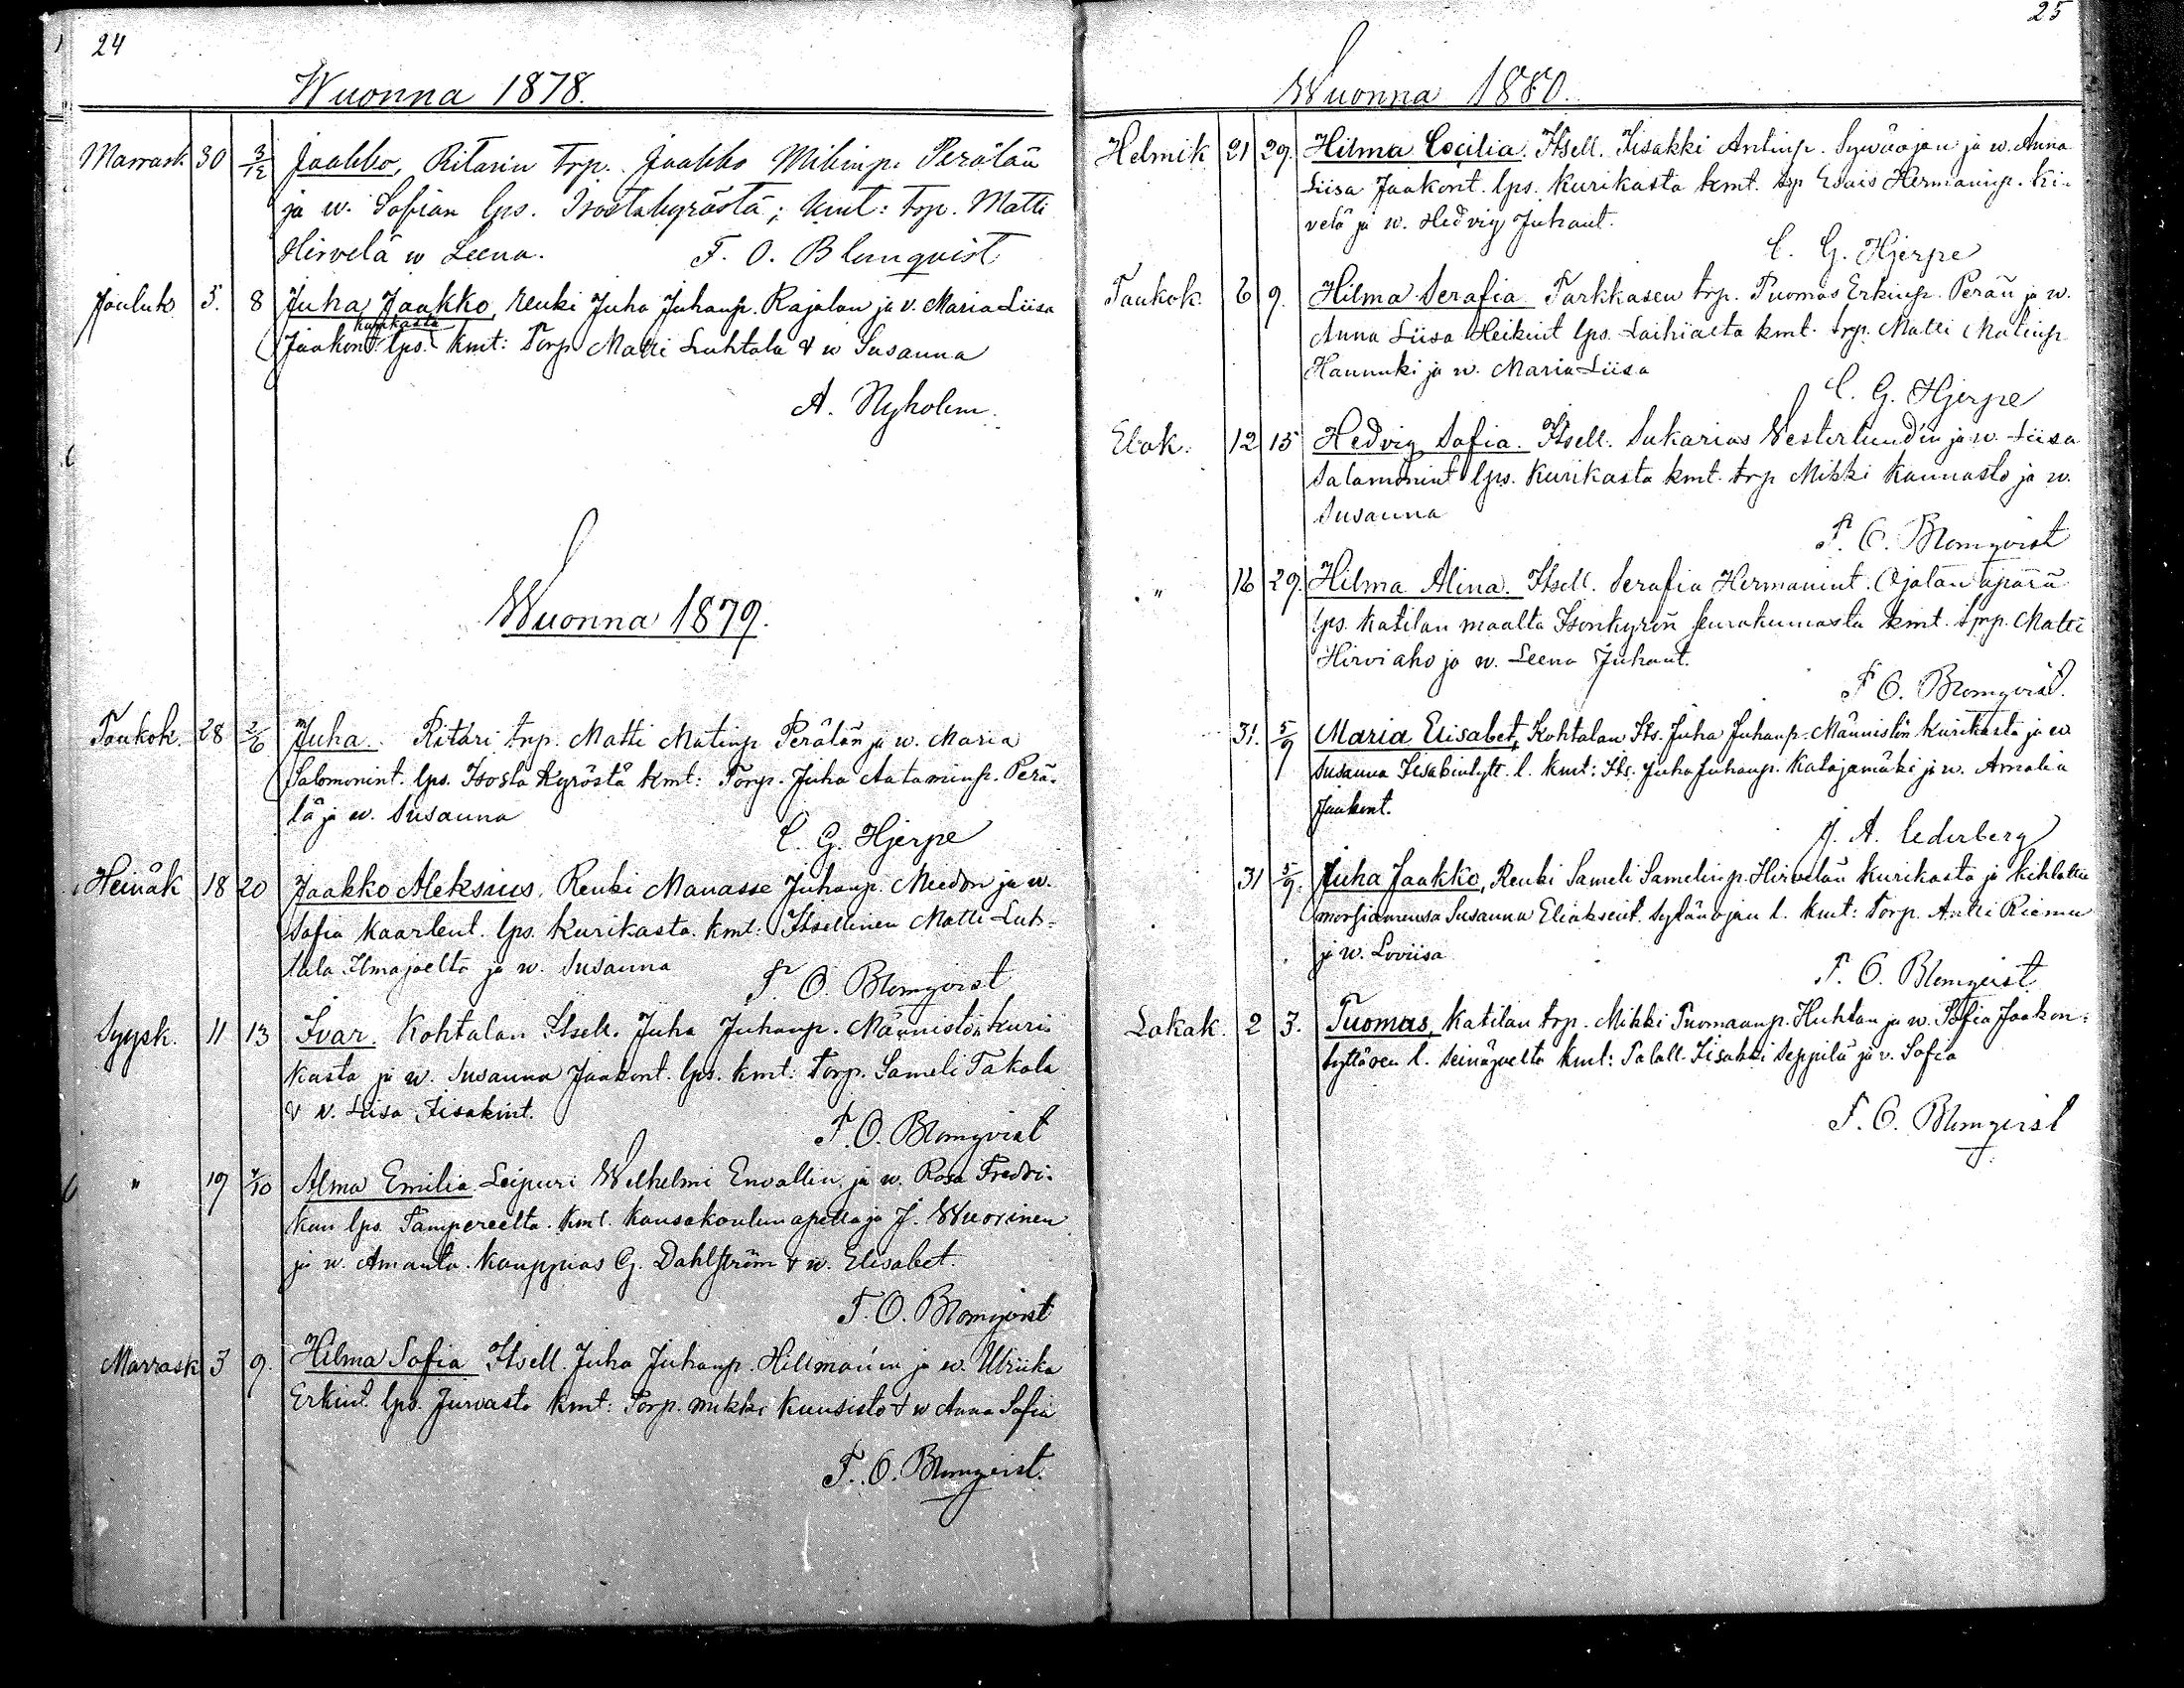 24
Wuonna 1878.
Marrask. 30 3/12 Jaakko, Ritarin trp. Jaakko Mikinp. Perälän
ja w. Sofian lps. Isostakyröstä; kmt: trp. Matti
Hirvelä w Leena. F. O. Blomqvist
Jouluk. 5. 8 Juha Jaakko, renki Juha Juhanp. Rajalan ja v. Maria Liisa
kurikasta
Jaakont. lps. kmt: Torp. Matti Luhtala & w Susanna
A. Nyholm.
Wuonna 1879.
Toukok. 28 2/6 Juha. Ritari trp. Matti Matinp Perälän ja w. Maria
Salomonint. lps. Isosta Kyröstä kmt: Torp. Juha Aataminp. Perä-
lä ja w. Susanna
C. G. Hjerpe
Heinäk 18 20 Jaakko Aleksius, Renki Manasse Juhanp. Miedon ja w.
Sofia Kaarlent. lps. Kurikasta. kmt: Itsellinen Matti Luh-
tala Ilmajoelta ja w. Susanna F. O. Blomqvist
Syysk. 11 13 Ivar. Kohtalan Itsell. Juha Juhanp. Männistön Kuri-
kasta ja w. Susanna Jaakont. lps. kmt: Torp. Sameli Takala
& w. Liisa Iisakint.
F. O. Blomqvist
" 19 /10 Alma Emilia Leipuri Wilhelmi Envallin ja w. Rosa Fredri-
kan lps. Tampereelta. kmt. kansakoulun opettaja J. Wuorinen
ja w. Amanta. Kauppias G. Dahlström & w. Elisabet.
F. O. Blomqvist
Marrask 3 9. Hilma Sofia Itsell. Juha Juhanp. Hillman'in ja w. Ulriika
Erkint. lps. Jurvasta kmt: Torp. Mikki Kuusisto & w Anna Sofia
F. O. Blomqvist.
25
Wuonna 1880.
Helmik 21 29. Hilma Cecilia. Itsell. Iisakki Antinp. Sywäojan ja w. Anna
Liisa Jaakont. lps. Kurikasta kmt. trp Esais Hermaninp. Ki-
velä ja w. Hedvig Juhant.
C. G. Hjerpe
Toukok. 6 9. Hilma Serafia Tarkkasen trp. Tuomas Erkinp. Perän ja w.
Anna Liisa Heikint lps. Laihialta kmt. trp. Matti Matinp
Hannuki ja w. Maria Liisa
C. G. Hjerpe
Elok. 12 15 Hedvig Sofia. Itsell. Sakarias Vesterlund'in ja w. Liisa
Salamonint lps. Kurikasta kmt. trp Mikki Kannasto ja w.
Susanna
F. O. Blomqvist
" 16 29. Hilma Alina. Itsell. Serafia Hermanint. Ojalan äpärä
lps. Katilan maalta Isonkyrön seurakunnasta kmt. trp. Matti
Hirviaho ja w. Leena Juhant.
F. O. Blomqvist.
31. 5/9 Maria Elisabet, Kohtalan Its. Juha Juhanp. Männistön Kurikasta ja w
Susanna Iisakintytt. l. kmt: Its. Juha Juhanp. Katajamäki ja w. Amalia
Jaakont.
J. A. Cederberg
31 5/9. Juha Jaakko, Renki Sameli Samelinp. Hirvelän Kurikasta ja kihlattu
morsiamensa Susanna Eliaksent. Sytänojan l. kmt: Torp. Antti Riemu
ja w. Loviisa
F. O. Blomqvist.
Lokak. 2 3. Tuomas, Katilan trp. Mikki Tuomaanp. Huhtan ja w. Sofia Jaakon-
tyttären l. Seinäjoelta kmt: Talall. Iisakki Seppilä ja v. Sofia
F. O. Blomqvist